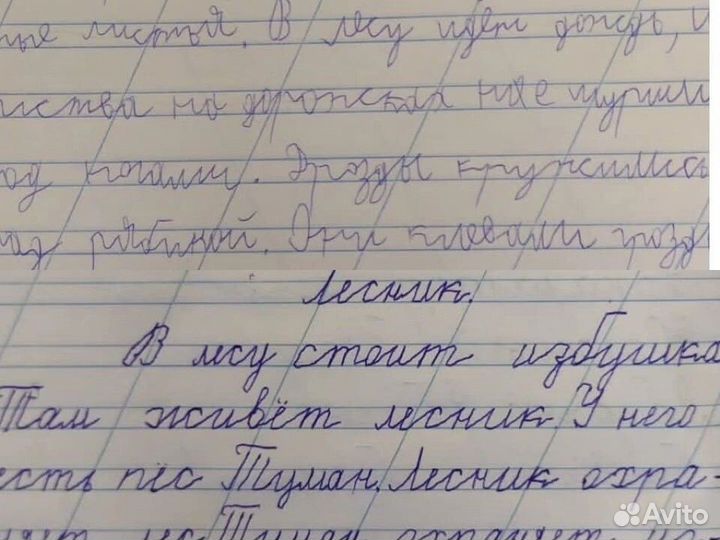 листья. В лесу идёт дождь, и
на дорожках не шурши
ногами. Дрозды кружились
рябиной. Они клевали грозд
Лесник.
В лесу стоит избушка
Там живёт лесник. У него
есть пёс Туман. Лесник охра-
лес. Туман охраняет
Avito